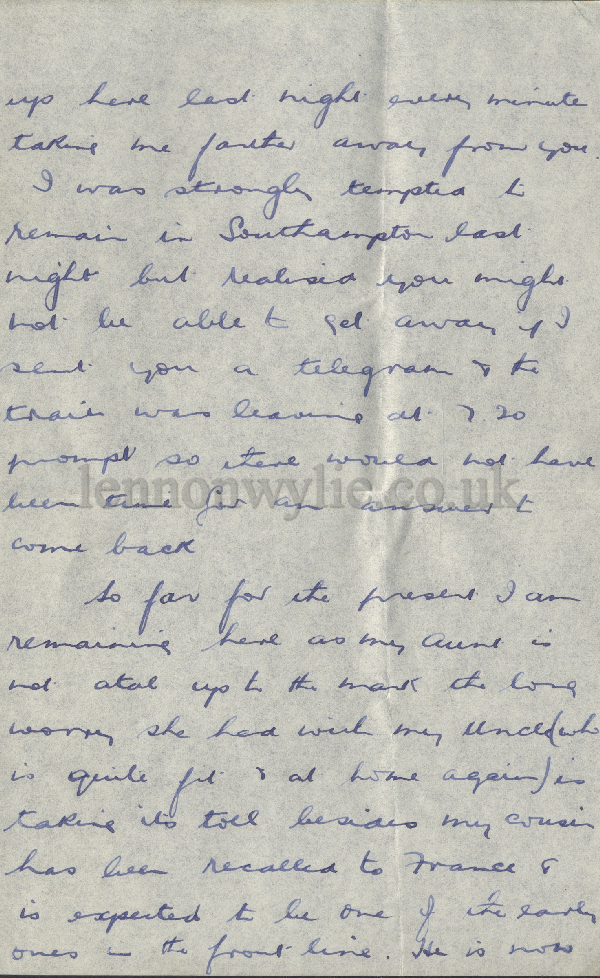 up here last night every minute
taking me farther away from you.
I was strongly tempted to
remain in Southampton last
night but realised you might
not be able to get away if I
sent you a telegram & the
train was leaving at 7.20
prompt so there would not have
been time for an answer to
come back
lennonwylie.co.uk
So far for the present I am
remaining here as my Aunt is
not atal up to the mark the long
worry she had with my Uncle (who
is quite fit & at home again) is
taking its toll besides my cousin
has been recalled to France &
is expected to be one of the early
ones in the front line. He is now